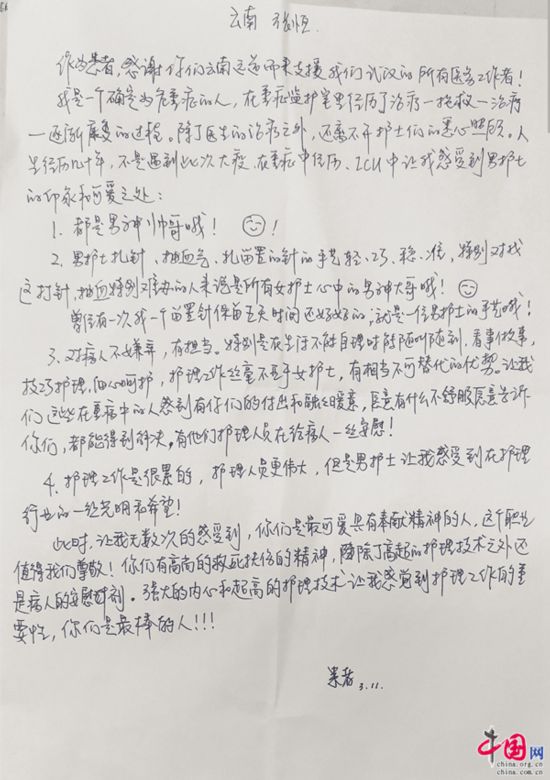 云南 张恒
作为患者,感谢你们云南远道而来支援我们武汉的所有医务工作者!
我是一个确定为危重症的人,在重症监护室里经历了治疗一抢救一治疗
一逐渐康复的过程。除了医生的治疗之外,还离不开护士们的悉心照顾。人
生经历几十年,不是遇到此次大疫,在重症中经历、ICU中让我感受到男护士
的印象和可爱之处:
1. 都是男神帅哥哦! ☺!
2. 男护士扎针、抽血气、扎留置的针的手艺轻、巧、稳、准,特别对我
这打针,抽血特别难办的人来说是所有女护士心中的男神大哥哦! ☺
曾经有一次我一个留置针保留五天时间还好好的,就是一位男护士的手艺哦!
3. 对病人不嫌弃,有担当。特别是在生活不能自理时随叫随到,看事做事,
技巧护理,细心呵护,护理工作丝毫不亚于女护士,有相当不可替代的优势。让我
们这些在重病中的人感到有你们的付出和融融暖意,愿意有什么不舒服愿意告诉
你们,都能得到解决。有他们护理人员在给病人一丝安慰!
4. 护理工作是很累的,护理人员更伟大,但是男护士让我感受到在护理
行业的一丝光明和希望!
此时,让我无数次的感受到,你们是最可爱具有奉献精神的人,这个职业
值得我们尊敬!你们有高尚的救死扶伤的精神,除了高超的护理技术之外还
是病人的安慰剂。强大的内心和超高的护理技术让我感觉到护理工作的重
要性,你们是最棒的人!!!
患者 3.11.
中国网
china.org.cn
china.com.cn